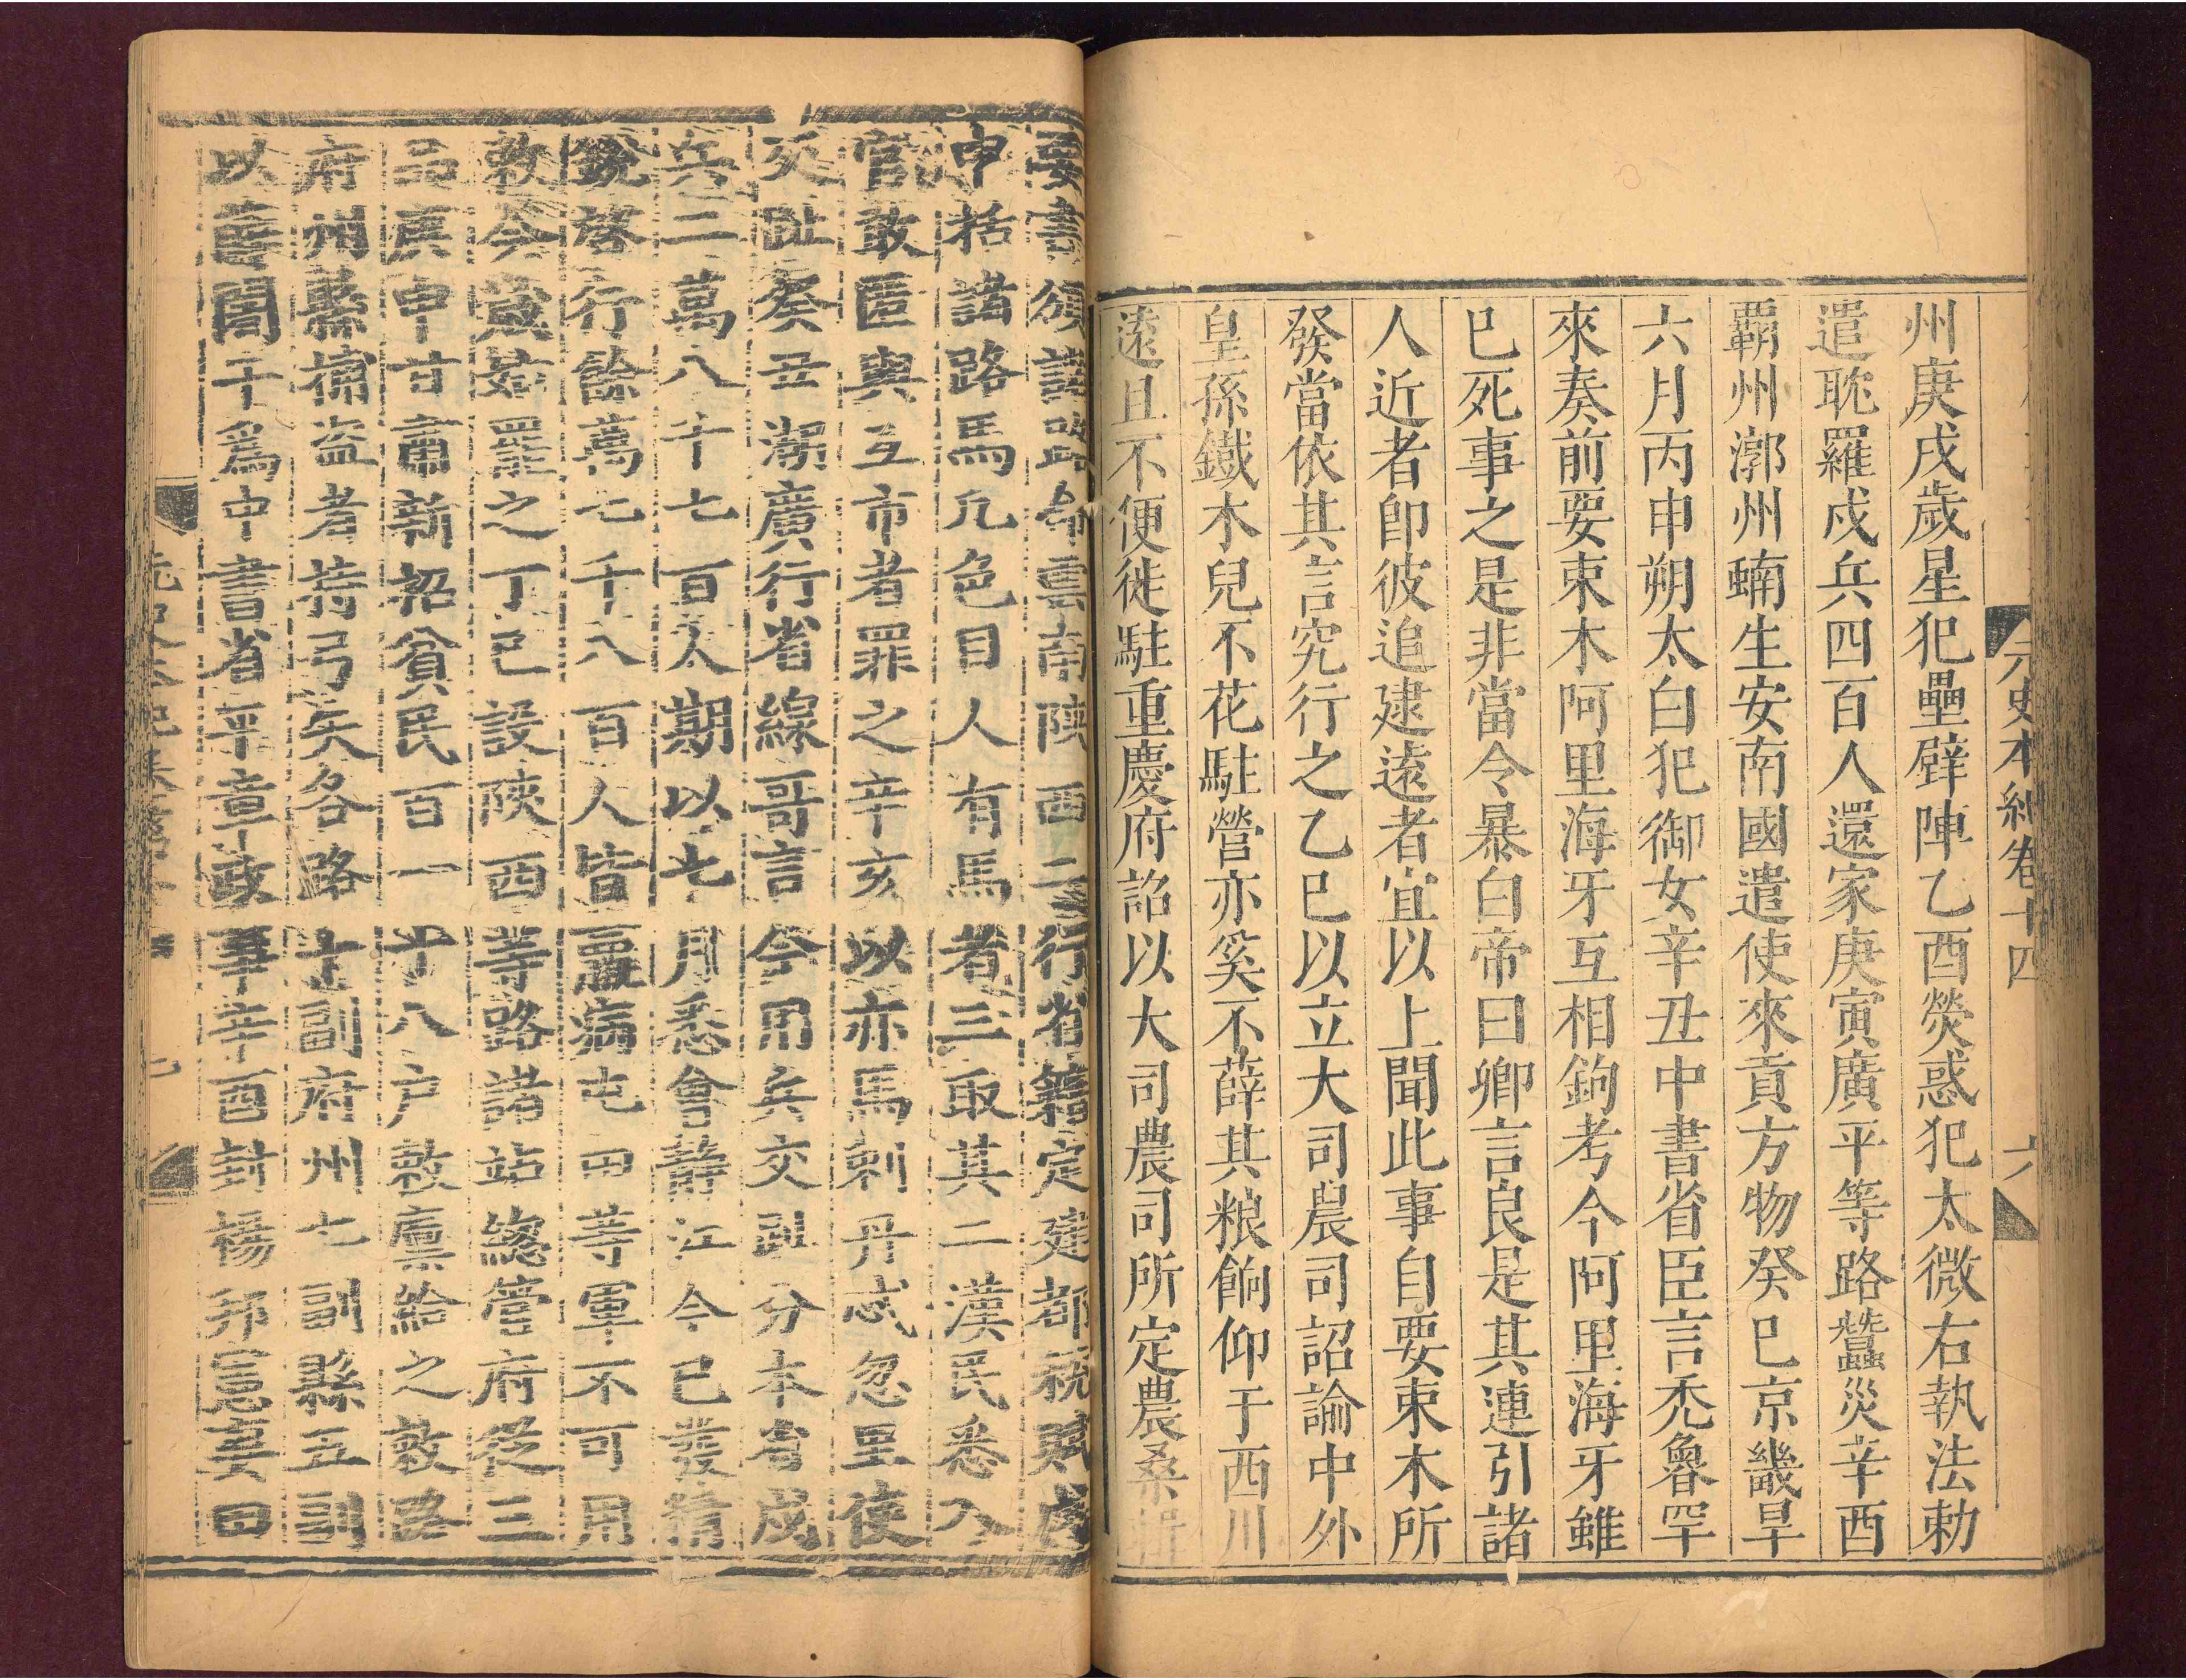 州庚戌歲星犯壘壁陣乙酉熒惑犯太微右執法勅
遣耽羅戍兵四百人還家庚寅廣平等路蠶災辛酉
覇州漷州蝻生安南國遣使來貢方物癸巳京畿旱
六月丙申朔太白犯御女辛丑中書省臣言禿魯罕
來奏前要束木阿里海牙互相鉤考今阿里海牙雖
已死事之是非當令暴白帝曰卿言良是其連引諸
人近者卽彼追逮遠者宜以上聞此事自要束木所
發當依其言究行之乙巳以立大司農司詔諭中外
皇孫鐵木兒不花駐營亦奚不薛其粮餉仰于西川
遠且不便徙駐重慶府詔以大司農司所定農桑輯
元史本紀卷十四
六
要書頒諸路命雲南陝西二行省籍定建都稅賦戊
申括諸路馬凡色目人有馬者三取其二漢民悉入
官敢匿與互市者罪之辛亥以亦馬剌丹忒忽里使
交趾癸丑湖廣行省線哥言今用兵交趾分本省戍
兵二萬八千七百人期以七月悉會靜江今已發精
銳啓行餘萬七千八百人皆羸病屯田等軍不可用
敕今歲姑罷之丁巳設陝西等路諸站總管府從三
品庚申甘肅新招貧民百一十八户敕廪給之敕路
府州縣捕盗者持弓矢各路十副府州七副縣五副
以薛闍干爲中書省平章政事辛酉封楊邦憲妻田